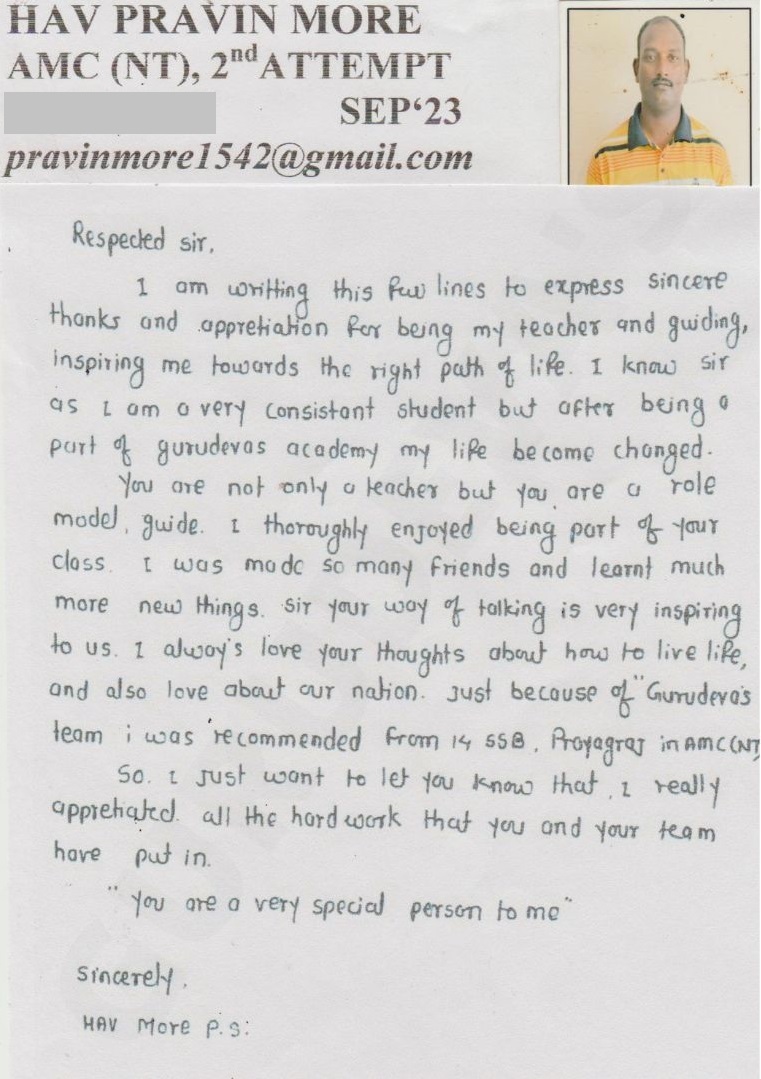 HAV PRAVIN MORE
AMC (NT), 2nd ATTEMPT
SEP‘23
pravinmore1542@gmail.com
Respected sir,
I am writting this few lines to express sincere
thanks and appretiation for being my teacher and guiding,
inspiring me towards the right path of life. I know sir
as I am a very consistant student but after being a
part of gurudevas academy my life become changed.
You are not only a teacher but you are a role
model, guide. I thoroughly enjoyed being part of your
class. I was made so many friends and learnt much
more new things. sir your way of talking is very inspiring
to us. I alway's love your thoughts about how to live life,
and also love about our nation. Just because of "Gurudeva's
team i was recommended from 14 SSB, Prayagraj in AMC (NT)
So. I Just want to let you know that, I really
apprehated. all the hard work that you and your team
have put in.
"you are a very special person to me"
sincerely,
HAV More P.S.